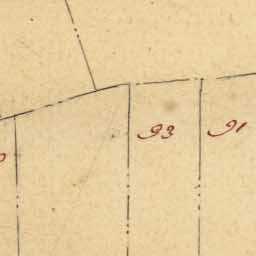 93 91